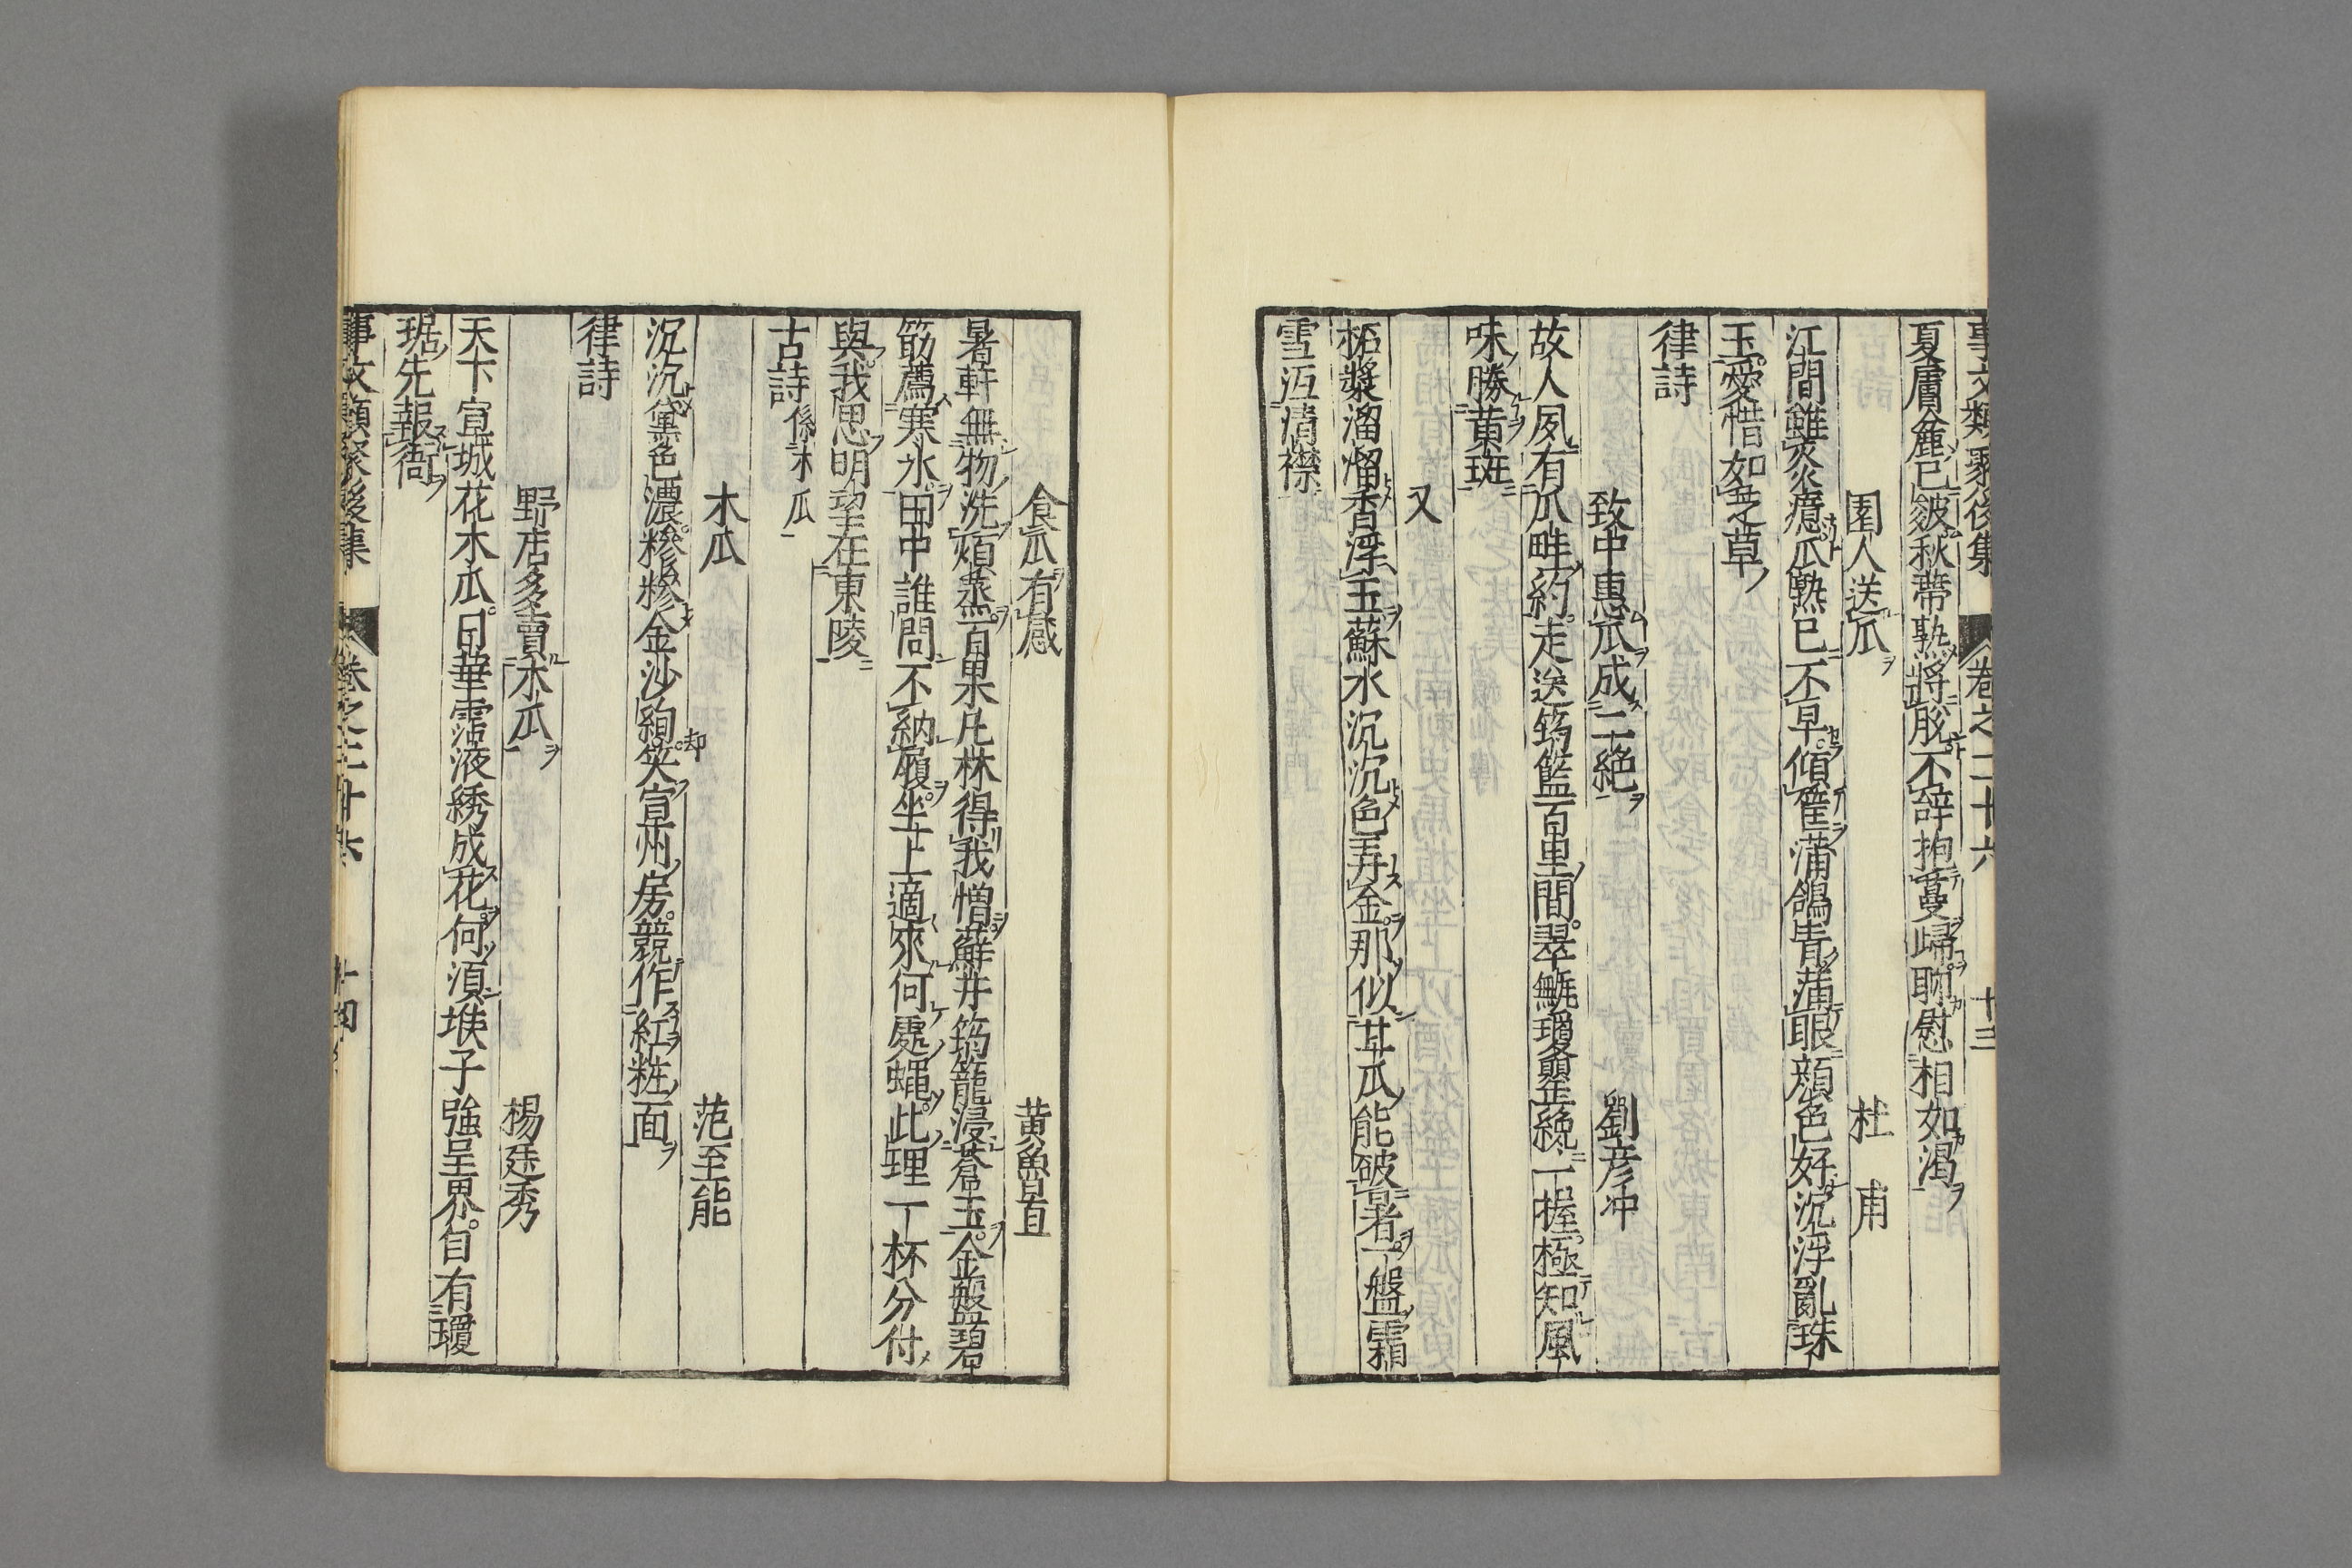 事文類聚後集 卷之二十六 十三
夏膚麄已皴秋蔕熟將脫不辞抱蔓歸聊慰相如渴
園人送瓜 杜甫
江間雖炎瘴瓜熟巳不早傾筐蒲鴿青蒲眼顔色好沉浮亂珠
玉愛惜如芝草
律詩
致中惠瓜成二絶 劉彦冲
故人夙有瓜畦約走送筠籃百里間翠瓤瓊罌纔一握極知風
味勝黄斑
又
柘漿溜溜香浮玉蘇水沉沉色弄金那似甘瓜能破暑一盤霜
雪沍清襟
食瓜有感 黄魯直
暑軒無物洗煩蒸百果凡材得我憎蘚井筠籠浸蒼玉金盤碧
筯薦寒氷田中誰問不納履坐上適來何處蠅此理一杯分付
與我思明望在東陵
古詩係木瓜
木瓜 范至能
沉沉黛色濃糝糝金沙絢却笑宣州房競作紅粧面
律詩
野店多賣木瓜 楊廷秀
天下宣城花木瓜日華露液綉成花何須堠子強呈界自有瓊
琚先報衙
事文類聚後集 卷之二十六 十四